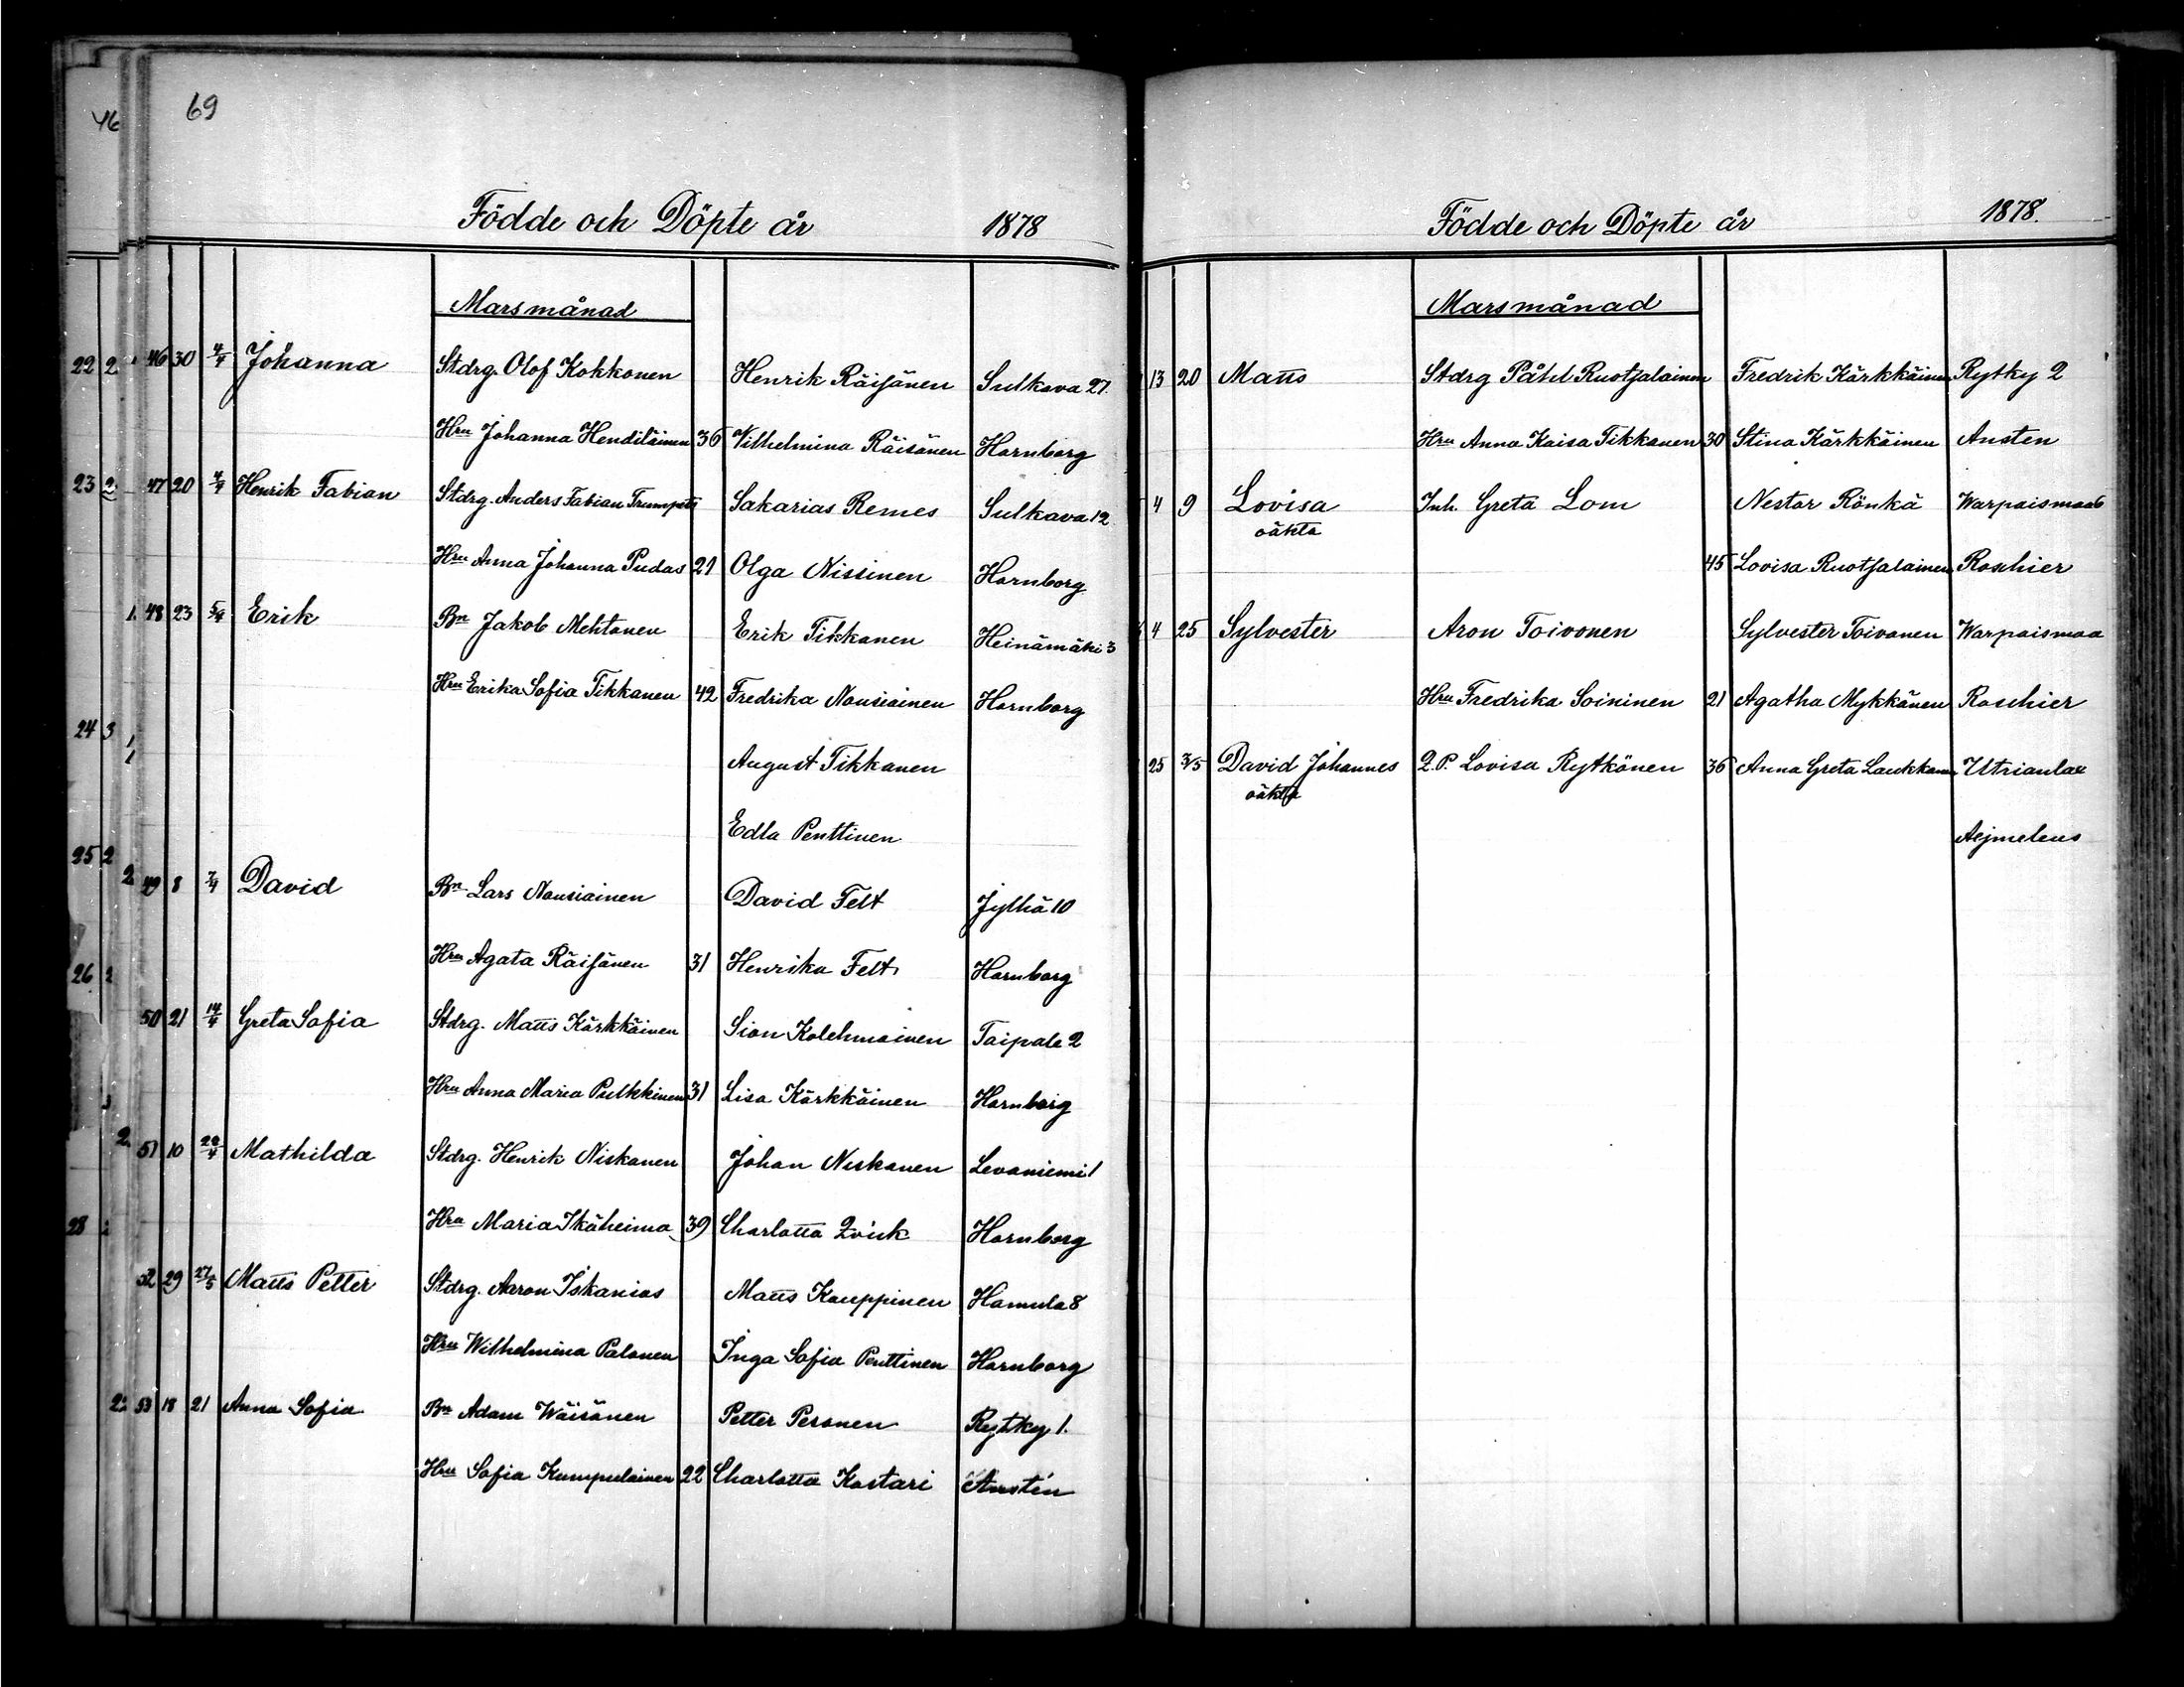 46
69
Födde och Döpte år 1878
Marsmånad
22 2 46 30 4/4 Johanna Stdrg. Olof Kokkonen Henrik Räisänen Sulkava 27.
Hru Johanna Hendiläinen 36 Vilhelmina Räisänen Hornborg
23 2 47 20 4/4 Henrik Fabian Stdrg. Anders Fabian Sakarias Remes Sulkava 12
Hru Anna Johanna Pudas 21 Olga Nissinen Hornborg
48 23 5/4 Erik Bn Jakob Mehtonen Erik Tikkanen Heinämäki 3
Hru Erika Sofia Tikkanen 42 Fredrika Nousiainen Hornborg
24 3 August Tikkanen
Edla Penttinen
25 2
49 8 7/4 David Bn Lars Nousiainen David Felt Jylhä 10
26 2 Hru Agata Räisänen 31 Henrika Felt Hornborg
50 21 14/4 Greta Sofia Stdrg. Matts Kärkkäinen Sion Kolehmainen Taipale 2
Hru Anna Maria Pulkkinen 31 Lisa Kärkkäinen Hornborg
51 10 22/4 Mathilda Stdrg. Henrik Niskanen Johan Niskanen Levaniemi 1
28 Hru Maria Ikäheimo 39 Charlotta Qvick Hornborg
52 29 27/5 Matts Petter Stdrg. Aaron Iskanius Matts Kauppinen Hamula 8
Hru Wilhelmina Palonen Inga Sofia Penttinen Hornborg
53 18 21 Anna Sofia Bn Adam Wäisänen Petter Personen Rytky 1.
Hru Sofia Kumpulainen 22 Charlotta Kostari Austén
Födde och Döpte år 1878.
Marsmånad
13 20 Matts Stdrg Påhl Ruotsalainen Fredrik Kärkkäinen Rytky 2
Hru Anna Kaisa Tikkanen 30 Stina Kärkkäinen Austen
4 9 Lovisa Inh. Greta Lom Nestor Rönkä Warpaismaa 6
oäkta
45 Lovisa Ruotsalainen Roschier
4 25 Sylvester Aron Toivonen Sylvester Toivanen Warpaismaa
Hru Fredrika Soininen 21 Agatha Mykkänen Roschier
25 3/5 David Johannes Q.P. Lovisa Rytkönen 36 Anna Greta Laukkanen Utrianlax
oäkta
Aejmeleus